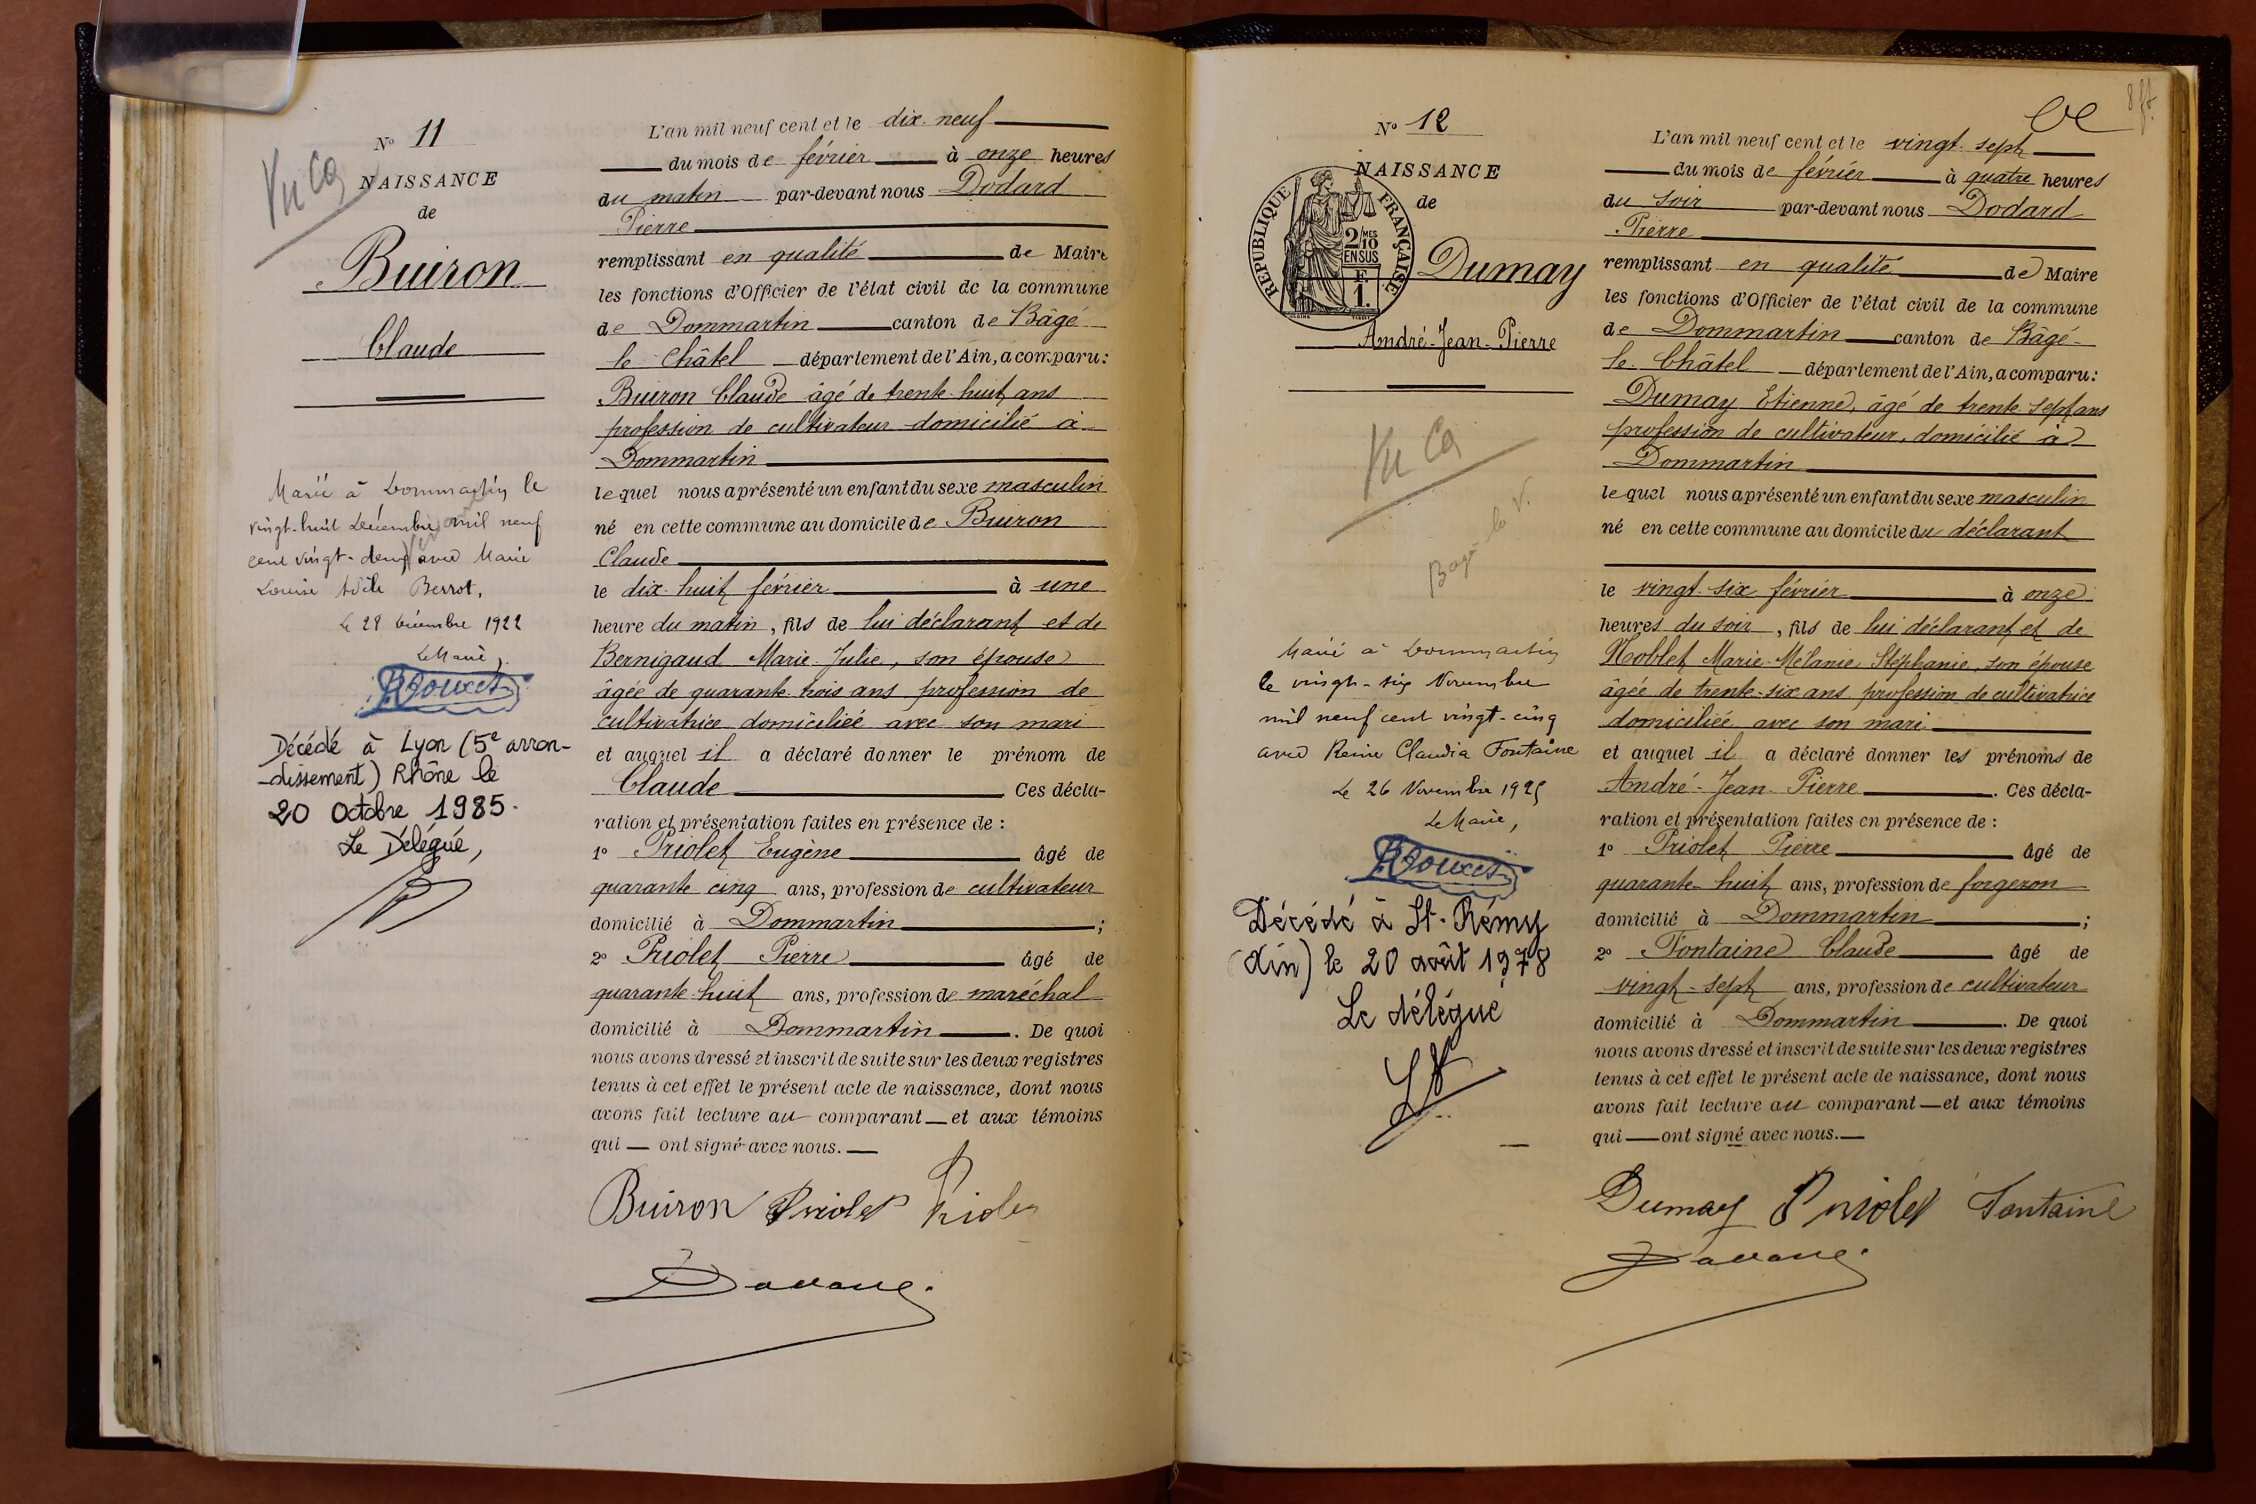 N° 11
NAISSANCE
de
Buiron
Claude
Vu Cg
Marié à Dommartin le
vingt-huit Décembre mil neuf
cent vingt-deux avec Marie
Louise Adèle Berrot.
Le 28 Décembre 1922
Le Maire,
Décédé à Lyon (5e arron-
dissement) Rhône le
20 Octobre 1985.
Le Délégué,
L'an mil neuf cent et le dix-neuf
du mois de février à onze heures
du matin par-devant nous Dodard
Pierre
remplissant en qualité de Maire
les fonctions d'Officier de l'état civil de la commune
de Dommartin canton de Bâgé
le Châtel département de l'Ain, a comparu :
Buiron Claude âgé de trente-huit ans
profession de cultivateur domicilié à
Dommartin
lequel nous a présenté un enfant du sexe masculin
né en cette commune au domicile de Buiron
Claude
le dix-huit février à une
heure du matin, fils de lui déclarant et de
Bernigaud Marie-Julie, son épouse
âgée de quarante-trois ans profession de
cultivatrice domiciliée avec son mari
et auquel il a déclaré donner le prénom de
Claude Ces décla-
ration et présentation faites en présence de :
1° Priolet Eugène âgé de
quarante cinq ans, profession de cultivateur
domicilié à Dommartin ;
2° Priolet Pierre âgé de
quarante-huit ans, profession de maréchal
domicilié à Dommartin . De quoi
nous avons dressé et inscrit de suite sur les deux registres
tenus à cet effet le présent acte de naissance, dont nous
avons fait lecture au comparant et aux témoins
qui ont signé avec nous.
Buiron Priolet Priolet
8 ft
N° 12
NAISSANCE
de
RÉPUBLIQUE FRANÇAISE
2/10 MES
EN SUS
F.
1.
Dumay
André-Jean-Pierre
Vu Cg
Bagé la V.
Marié à Dommartin
le vingt-six Novembre
mil neuf cent vingt-cinq
avec Reine Claudia Fontaine
Le 26 Novembre 1925
Le Maire,
Décédé à St-Rémy
(Ain) le 20 août 1978
Le délégué
L'an mil neuf cent et le vingt-sept
du mois de février à quatre heures
du soir par-devant nous Dodard
Pierre
remplissant en qualité de Maire
les fonctions d'Officier de l'état civil de la commune
de Dommartin canton de Bâgé-
le-Châtel département de l'Ain, a comparu :
Dumay Etienne, âgé de trente-sept ans
profession de cultivateur, domicilié à
Dommartin
lequel nous a présenté un enfant du sexe masculin
né en cette commune au domicile du déclarant
le vingt-six février à onze
heures du soir, fils de lui déclarant et de
Noblet Marie-Mélanie Stéphanie, son épouse
âgée de trente-six ans profession de cultivatrice
domiciliée avec son mari
et auquel il a déclaré donner les prénoms de
André-Jean-Pierre . Ces décla-
ration et présentation faites en présence de :
1° Priolet Pierre âgé de
quarante-huit ans, profession de forgeron
domicilié à Dommartin ;
2° Fontaine Claude âgé de
vingt-sept ans, profession de cultivateur
domicilié à Dommartin . De quoi
nous avons dressé et inscrit de suite sur les deux registres
tenus à cet effet le présent acte de naissance, dont nous
avons fait lecture au comparant et aux témoins
qui ont signé avec nous.
Dumay Priolet Fontaine